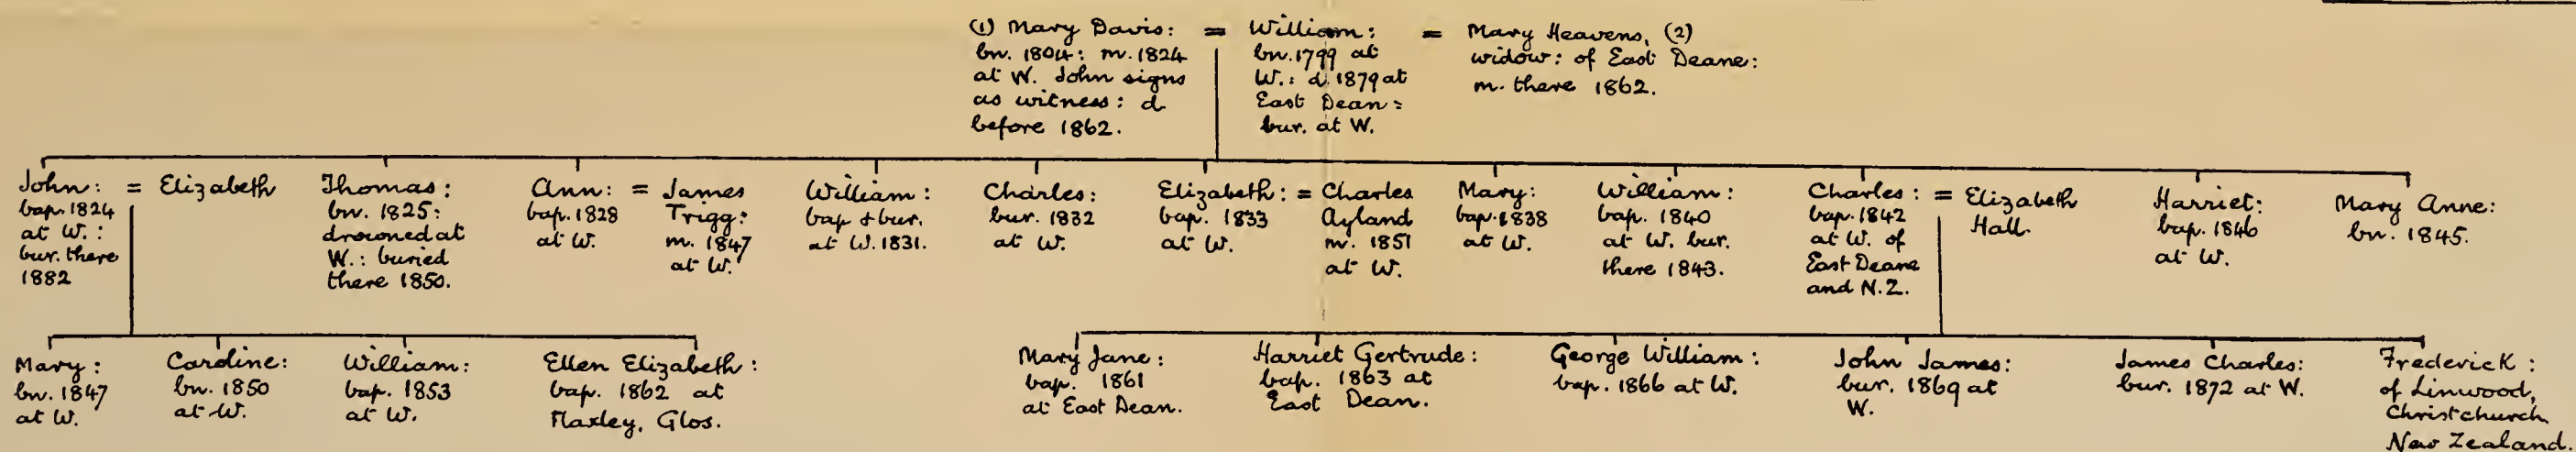 (1) Mary Davis:
bn. 1804: m. 1824
at W. John signs
as witness: d
before 1862.
=
William:
bn. 1799 at
W.: d. 1879 at
East Dean:
bur. at W.
=
Mary Heavens, (2)
widow: of East Deane:
m. there 1862.
John:
bap. 1824
at W.:
bur. there
1882
= Elizabeth
Thomas:
bn. 1825:
drowned at
W.: buried
there 1850.
Ann:
bap. 1828
at W.
= James
Trigg:
m. 1847
at W.
William:
bap & bur.
at W. 1831.
Charles:
bur. 1832
at W.
Elizabeth:
bap. 1833
at W.
= Charles
Ayland
m. 1851
at W.
Mary:
bap. 1838
at W.
William:
bap. 1840
at W. bur.
there 1843.
Charles:
bap. 1842
at W. of
East Deane
and N.Z.
= Elizabeth
Hall.
Harriet:
bap. 1846
at W.
Mary Anne:
bn. 1845.
Mary:
bn. 1847
at W.
Caroline:
bn. 1850
at W.
William:
bap. 1853
at W.
Ellen Elizabeth:
bap. 1862 at
Flaxley, Glos.
Mary Jane:
bap. 1861
at East Dean.
Harriet Gertrude:
bap. 1863 at
East Dean.
George William:
bap. 1866 at W.
John James:
bur. 1869 at
W.
James Charles:
bur. 1872 at W.
Frederick:
of Linwood,
Christchurch
New Zealand.